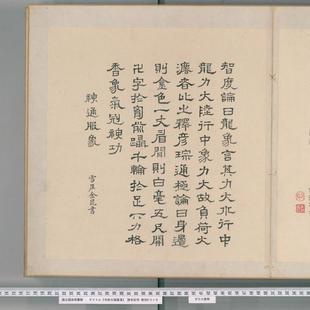 智度論曰龍象言其力大水行中
龍力大陸行中象力大故負荷大
灋者比之釋彥琮通極論曰身邊
則金色一丈眉間則白毫五尺開
卍字於匈前躡千輪於足下力格
香象氣冠神功
神通服象
書
国立国会図書館